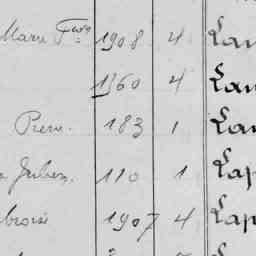 Marie Fse 1908 4 Lan
1360 4 Lan
Pierre. 183 1 Lan
Julien. 110 1 Lap
broise 1907 4 Lap